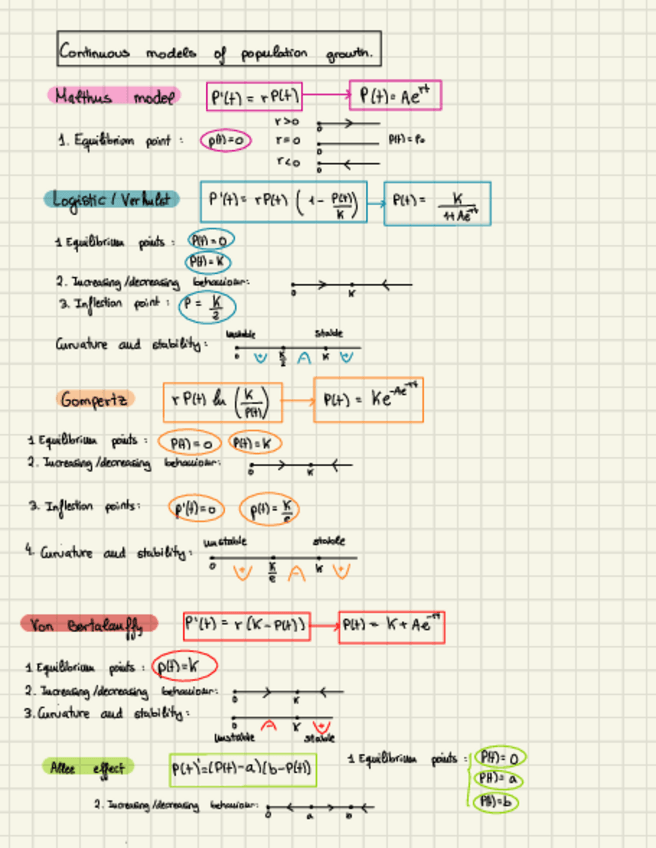 Continuous models of population growth.
Malthus model P'(t) = r P(t) P(t) = Ae^rt
r>0
0
1. Equilibrium point : p(t)=0 r=0 P(t) = P₀
0
r<0
0
Logistic / Verhulst P'(t) = rP(t) (1 - P(t)/K) P(t) = K/(1+Ae^-rt)
1 Equilibrium points : P(t)=0
P(t)=K
2. Increasing/decreasing behaviour:
0 K
3. Inflection point : P = K/2
unstable stable
Curvature and stability :
0 K/2 K
Gompertz r P(t) ln (K/P(t)) P(t) = Ke^-Ae^-rt
1 Equilibrium points : P(t)=0 P(t)=K
2. Increasing/decreasing behaviour:
0 K
3. Inflection points: p'(t)=0 p(t)=K/e
unstable stable
4. Curvature and stability :
0 K/e K
Von Bertalanffy P'(t) = r (K-P(t)) P(t) = K + Ae^-rt
1 Equilibrium points : p(t)=K
2. Increasing/decreasing behaviour:
0 K
3. Curvature and stability :
0 K
unstable stable
Allee effect P(t)'=(P(t)-a)(b-P(t)) 1 Equilibrium points : P(t)=0
P(t)=a
P(t)=b
2. Increasing/decreasing behaviour:
0 a b